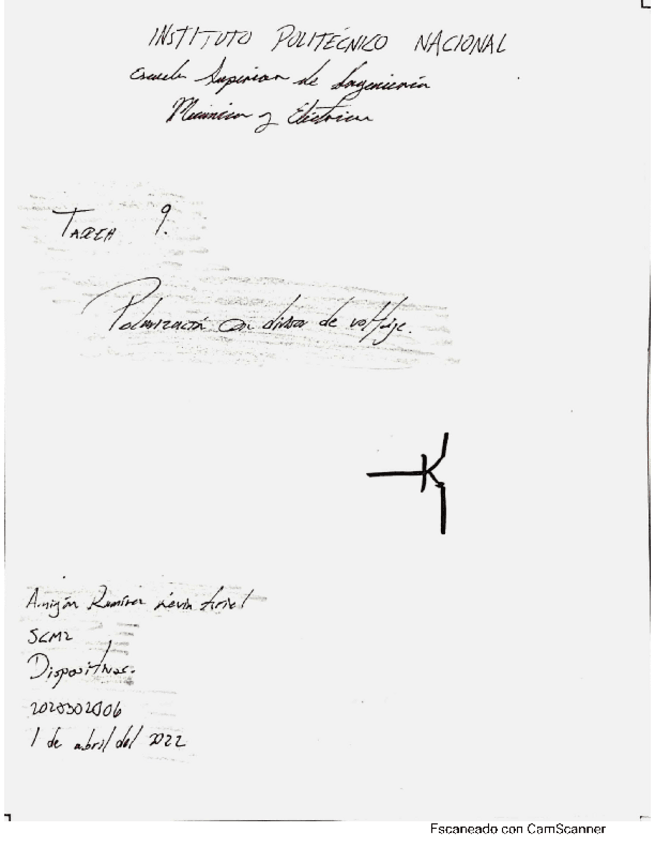 INSTITUTO POLITÉCNICO NACIONAL
Escuela Superior de Ingeniería
Mecánica y Eléctrica
TAREA 9.
Polarización con divisor de voltaje.
Ramírez Kevin Ariel
5CM2
Dispositivos.
1 de abril del 2022
Escaneado con CamScanner